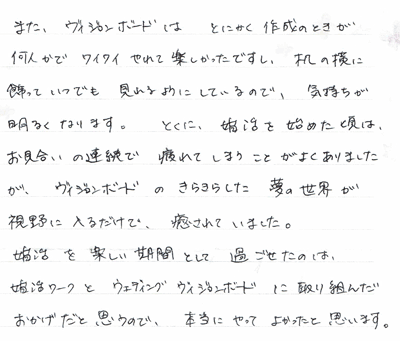 また、ヴィジョンボードは とにかく作成のときが
何人かで ワイワイ やれて楽しかったですし、机の横に
飾って いつでも 見れるようにしているので、気持ちが
明るくなります。 とくに、婚活を始めた頃は、
お見合いの連続で 疲れてしまうことがよくありました
が、ヴィジョンボードの きらきらした 夢の世界が
視野に入るだけで、癒されていました。
婚活を楽しい期間として 過ごせたのは、
婚活ワークと ウェディングヴィジョンボードに取り組んだ
おかげだと思うので、本当にやってよかったと思います。